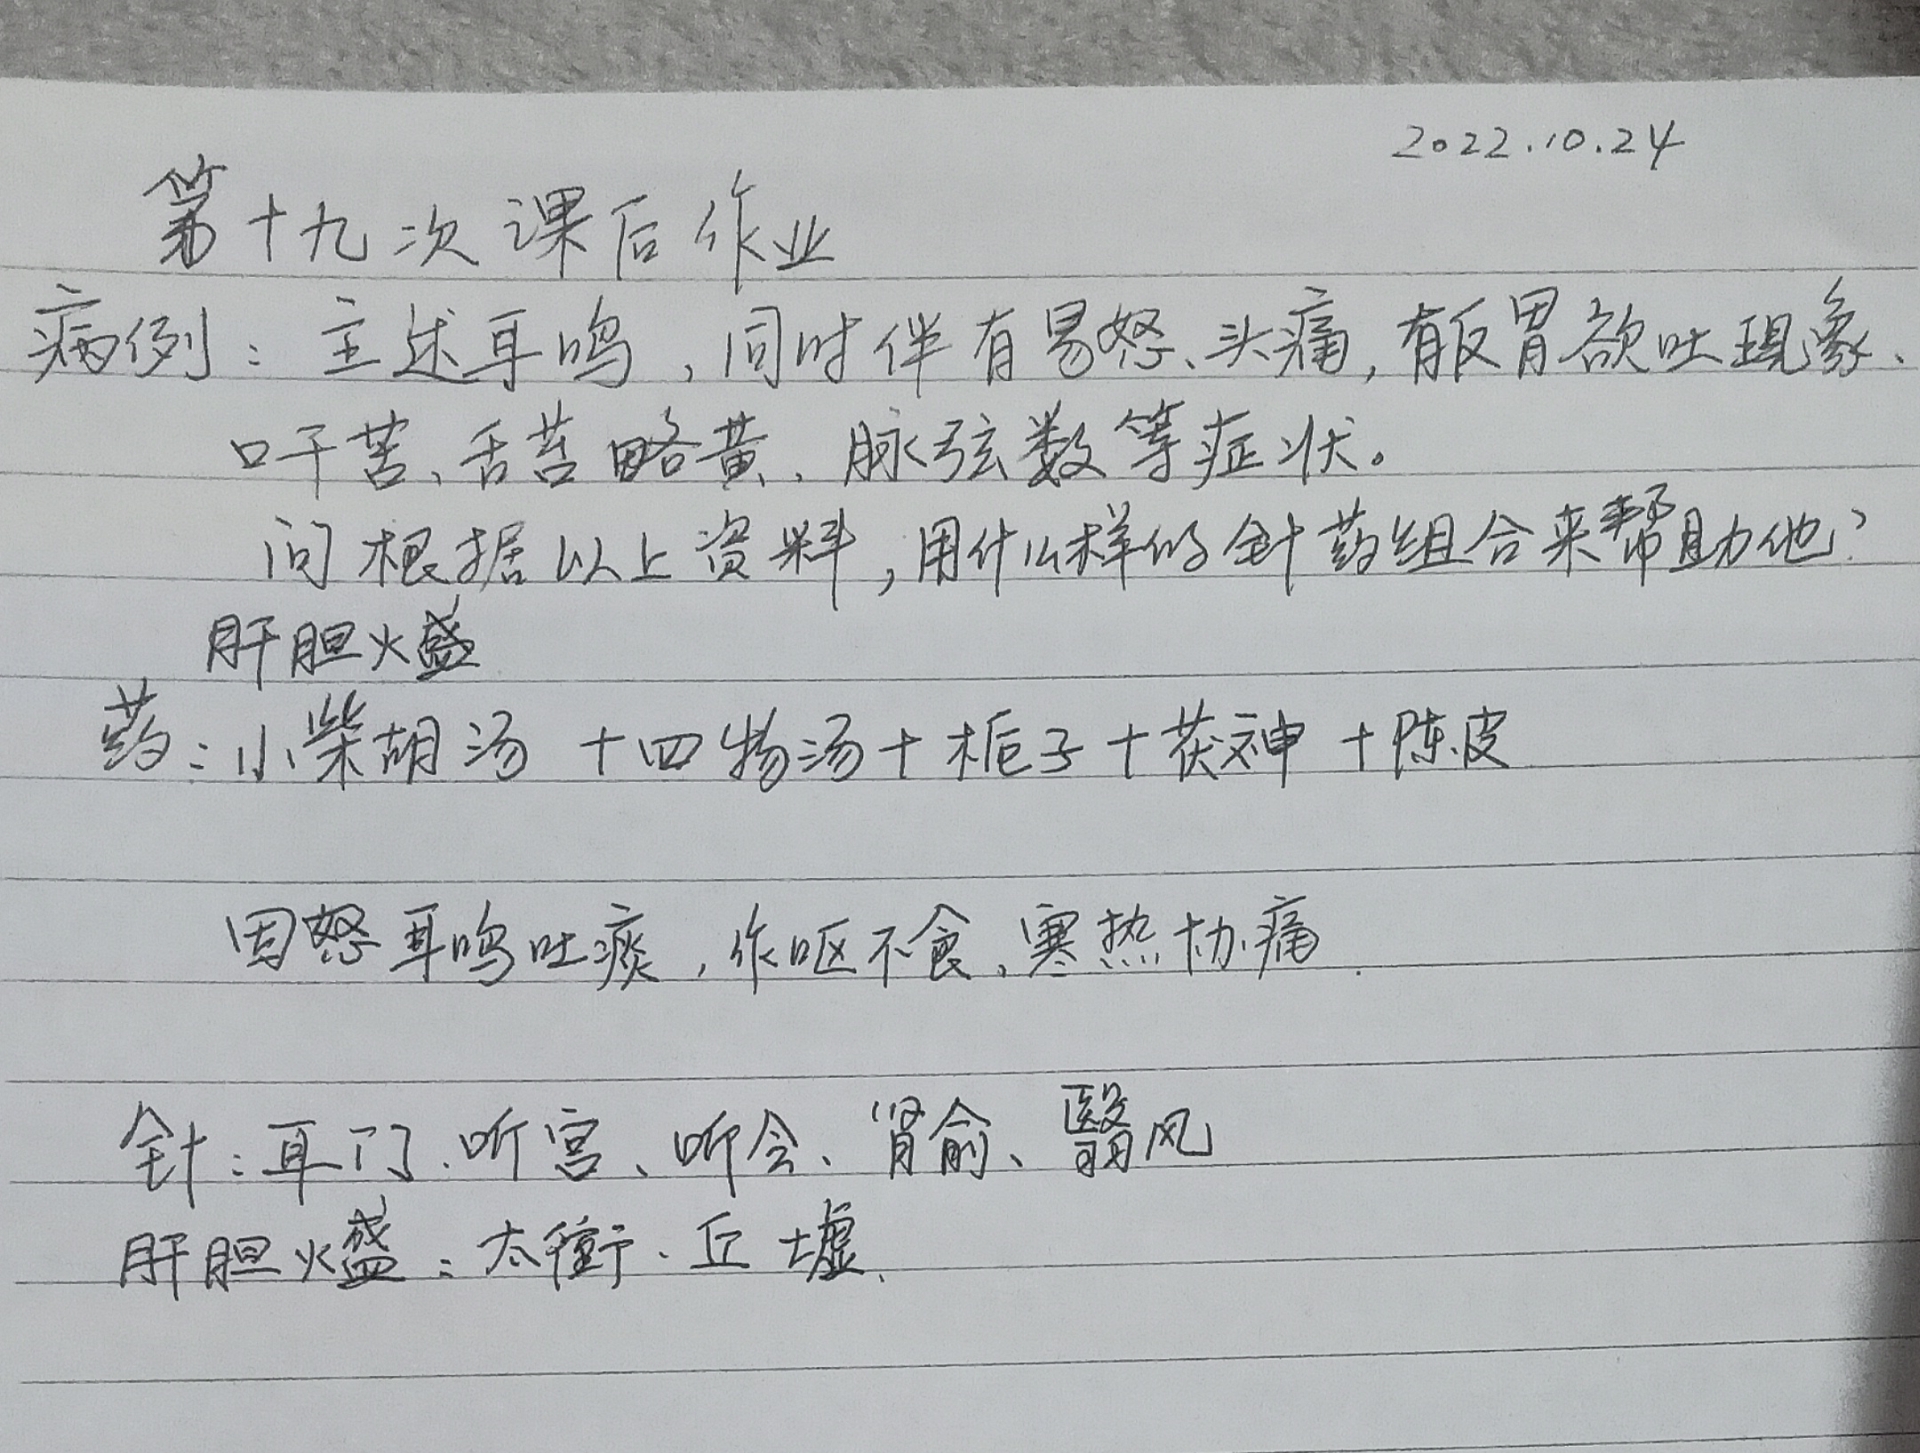 2022.10.24
第十九次课后作业
病例：主述耳鸣，同时伴有易怒、头痛，有反胃欲吐现象、
口干苦、舌苔略黄、脉弦数等症状。
问根据以上资料，用什么样的针药组合来帮助他？
肝胆火盛
药：小柴胡汤+四物汤+栀子+茯神+陈皮
因怒耳鸣吐痰，作呕不食、寒热协痛.
针：耳门、听宫、听会、肾俞、翳风
肝胆火盛：太衝、丘墟、